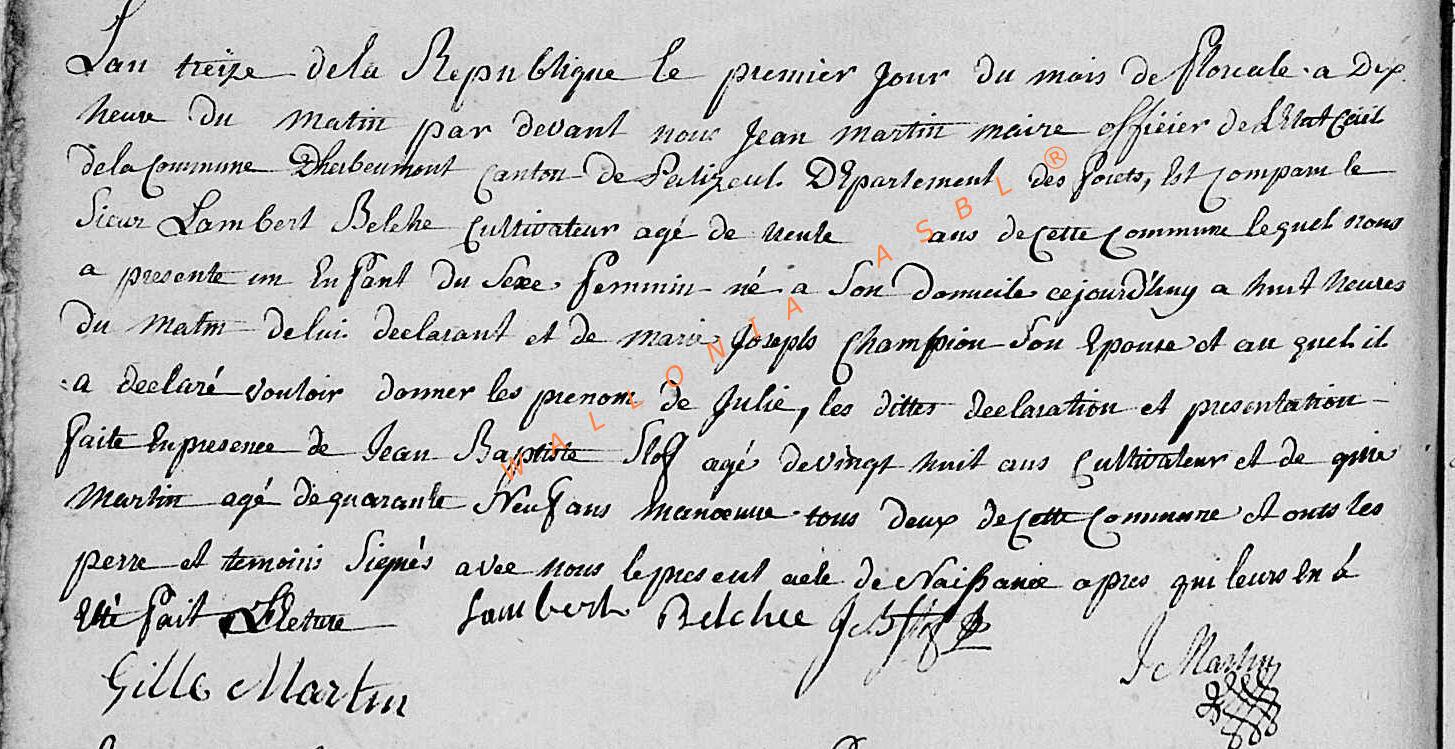 Lan treize dela Republique le premier Jour du mois de floreale a Dix
heure du matin par devant nous Jean martin maire officier de LEtat Civil
dela Commune Dherbeumont Canton de Palizeul Département des forets, Est Comparu le
Sieur Lambert Belche Cultivateur agé de trente ans de Cette Commune lequel nous
a presente un Enfant du Sexe feminin né a Son domicile cejourd'huy a huit heures
du matin de lui declarant et de marie Joseph Champion Son Epouse et au quel il
a declaré vouloir donner les prenom de Julie, les dittes declaration et presentation
faite En presence de Jean Baptiste agé de vingt huit ans Cultivateur et de
Martin agé de quarante Neuf ans manoeuvre tous deux de Cette Commune et onts les
perre et temoins Signés avec nous le present acte de Naissance apres qui leurs En à
Eté fait Lecture Lambert Belchee
J Martin
Gille Martin
WALLONIA ASBL ®